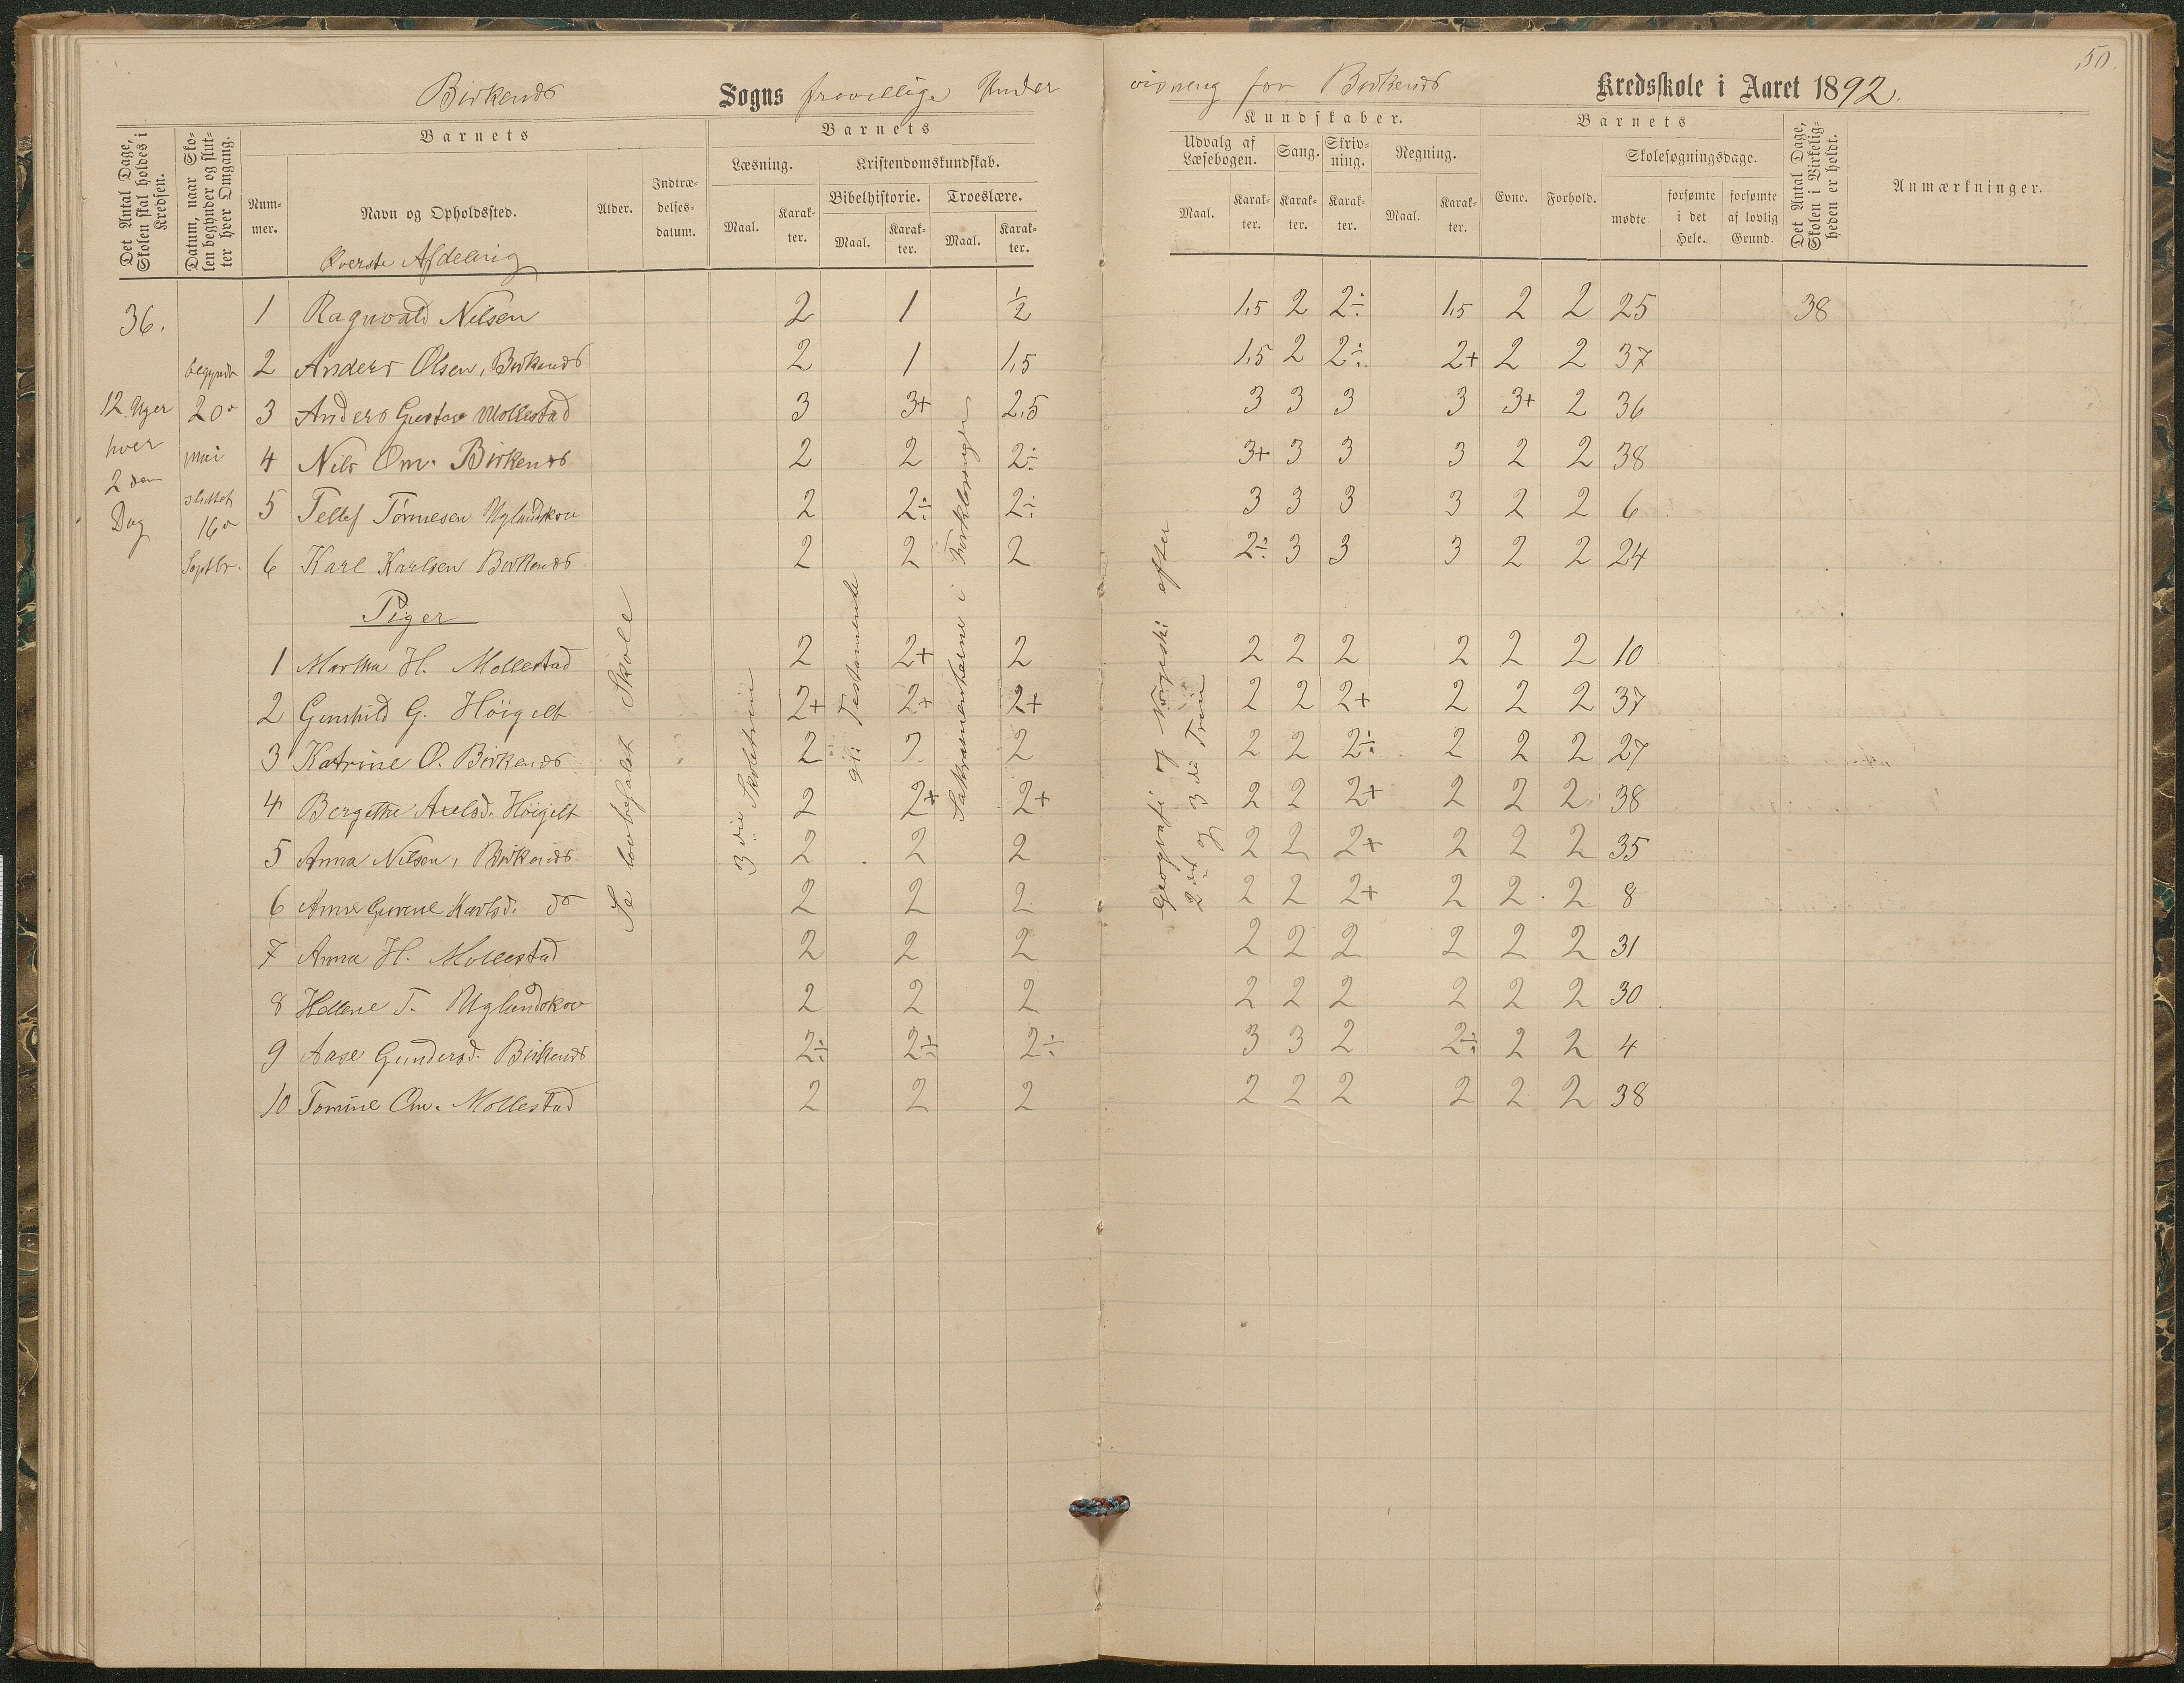 50.
Birkenes Sogns frivillige Under
visning for Birkenes Kredsskole i Aaret 1892.
Det Antal Dage, Skolen skal holdes i Kredsen.
Datum, naar Skolen begynder og slutter hver Omgang.
Barnets
Nummer.
Navn og Opholdssted.
Alder.
Indtrædelsesdatum.
Barnets
Læsning.
Kristendomskundskab.
Bibelhistorie.
Troeslære.
Maal.
Karakter.
Maal.
Karakter.
Maal.
Karakter.
Kundskaber.
Udvalg af Læsebogen.
Sang.
Skrivning.
Regning.
Maal.
Karakter.
Karakter.
Karakter.
Maal.
Karakter.
Barnets
Evne.
Forhold.
Skolesøgningsdage.
mødte
forsømte i det Hele.
forsømte af lovlig Grund.
Det Antal Dage, Skolen i Virkeligheden er holdt.
Anmærkninger.
Øverste Afdeling
36.
12 Uger
hver
2den
Dag
begyndt
20de
juni
sluttet
16de
Septbr.
1 Ragnvald Nilsen 2 1 1/2 1,5 2 2÷ 1,5 2 2 25 38
2 Anders Olsen, Birkenes 2 1 1,5 1,5 2 2÷ 2+ 2 2 37
3 Anders Gustav Mollestad 3 3+ 2,5 3 3 3 3 3+ 2 36
4 Nils Om. Birkenes 2 2 2÷ 3+ 3 3 3 2 2 38
5 Tellef Tørresen Uglandskov 2 2÷ 2÷ 3 3 3 3 2 2 6
6 Karl Karlsen Birkenes 2 2 2 2÷ 3 3 3 2 2 24
Piger
1 Martha H. Mollestad 2 2+ 2 2 2 2 2 2 2 10
2 Gunhild G. Høigilt 2+ 2+ 2+ 2 2 2+ 2 2 2 37
3 Katrine O. Birkenes 2 2 2 2 2 2÷ 2 2 2 27
4 Bergithe Axelsd. Høigilt 2 2+ 2+ 2 2 2+ 2 2 2 38
5 Anna Nilsen, Birkenes 2 2 2 2 2 2+ 2 2 2 35
6 Anne Gurine Karlsd. do 2 2 2 2 2 2+ 2 2 2 8
7 Anna H. Mollestad 2 2 2 2 2 2 2 2 2 31
8 Hellene T. Uglandskov 2 2 2 2 2 2 2 2 2 30
9 Aase Gundersd. Birkenes 2÷ 2÷ 2÷ 3 3 2 2÷ 2 2 4
10 Tomine Om. Mollestad 2 2 2 2 2 2 2 2 2 38
Se lovbefalet Skole
3die Skoletrin
Testamente
Sakramenterne i Forklaringen
Geografi og Norgeshi efter
2det og 3die Trin